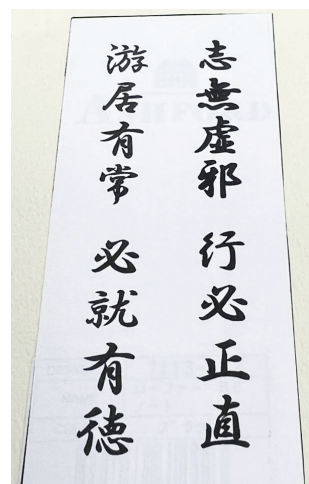 志無虛邪 行必正直
游居有常 必就有德